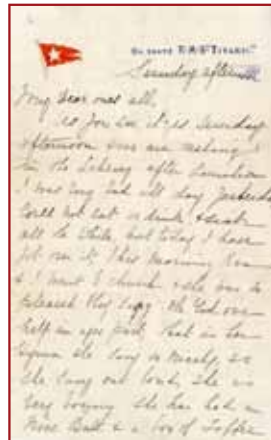 On board R.M.S. "Titanic"
Sunday afternoon
My Dear ones all,
As you see it is Sunday
afternoon and we are
in the Library after luncheon
I was very bad all day yesterday
Could not eat or drink
all the while, but today I have
got over it, this morning Eva
& I went to church & she was so
pleased they sang Oh God our
help in ages past that is her
Hymn she sang so nicely, so
she sang out loud, she is
very bonny she has had a
nice Ball & a box of Toffee